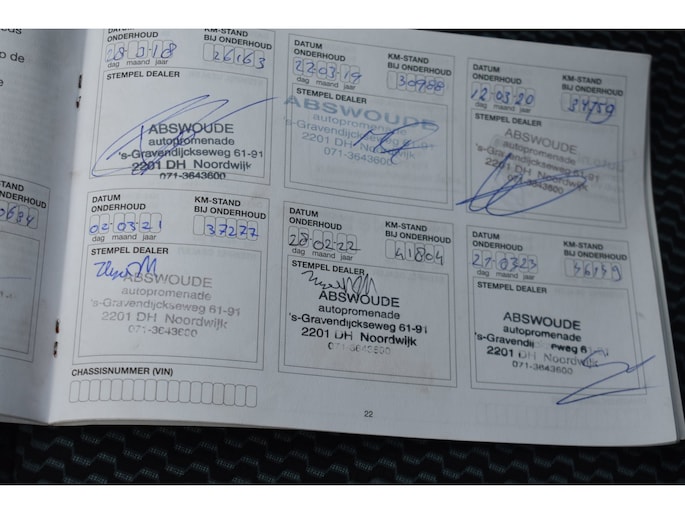 o de
STAND
DERHOUD
DATUM
ONDERHOUD
KM-STAND
BIJ ONDERHOUD
26163
dag maand jaar
STEMPEL DEALER
ABSWOUDE
autopromenade
's-Gravendijckseweg 61-91
2201 DH Noordwijk
071-3643600
DATUM
ONDERHOUD
KM-STAND
BIJ ONDERHOUD
22 03 19
30988
dag maand jaar
STEMPEL DEALER
ABSWOUDE
autopromenade
's-Gravendijckseweg 61-91
2201 DH Noordwijk
071-3643600
DATUM
ONDERHOUD
KM-STAND
BIJ ONDERHOUD
12 03 20
34759
dag maand jaar
STEMPEL DEALER
ABSWOUDE
autopromenade
's-Gravendijckseweg 61-91
2201 DH Noordwijk
071-3643600
DATUM
ONDERHOUD
KM-STAND
BIJ ONDERHOUD
02 03 21
37277
dag maand jaar
STEMPEL DEALER
ABSWOUDE
autopromenade
's-Gravendijckseweg 61-91
2201 DH Noordwijk
071-3643600
DATUM
ONDERHOUD
KM-STAND
BIJ ONDERHOUD
28 02 22
41804
dag maand jaar
STEMPEL DEALER
ABSWOUDE
autopromenade
's-Gravendijckseweg 61-91
2201 DH Noordwijk
DATUM
ONDERHOUD
KM-STAND
BIJ ONDERHOUD
21 03 23
46149
dag maand jaar
STEMPEL DEALER
ABSWOUDE
autopromenade
's-Gravendi eweg 6
2201 DH Noordwijk
071-3643600
CHASSISNUMMER (VIN)
22